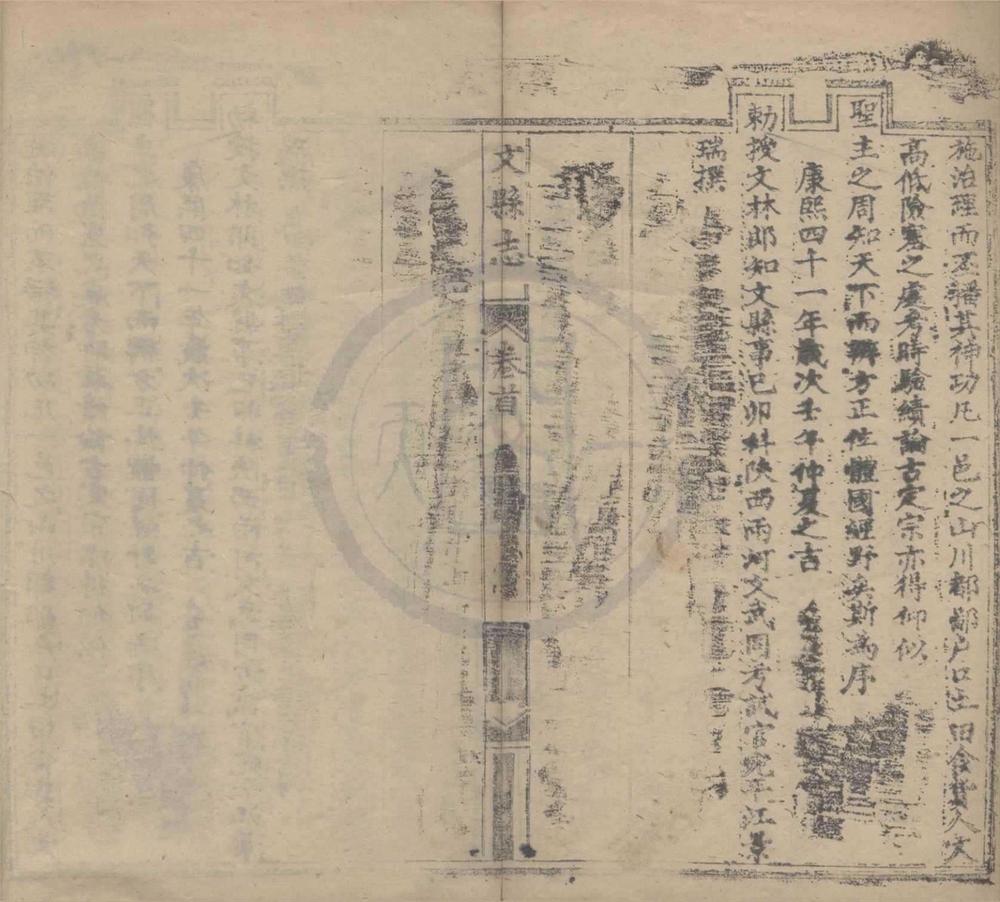 施治理而不播其神功凡一邑之山川都鄙戶口土田含
高低險塞之處考時驗績論古定宗亦得仰似
聖主之周知天下而辨方正位體國經野矣斯為序
康熙四十一年歲次壬午仲夏之吉
勅授文林郎知文縣事己卯科陝西兩河文武同考試官宛平江景
瑞撰
文縣志 卷首